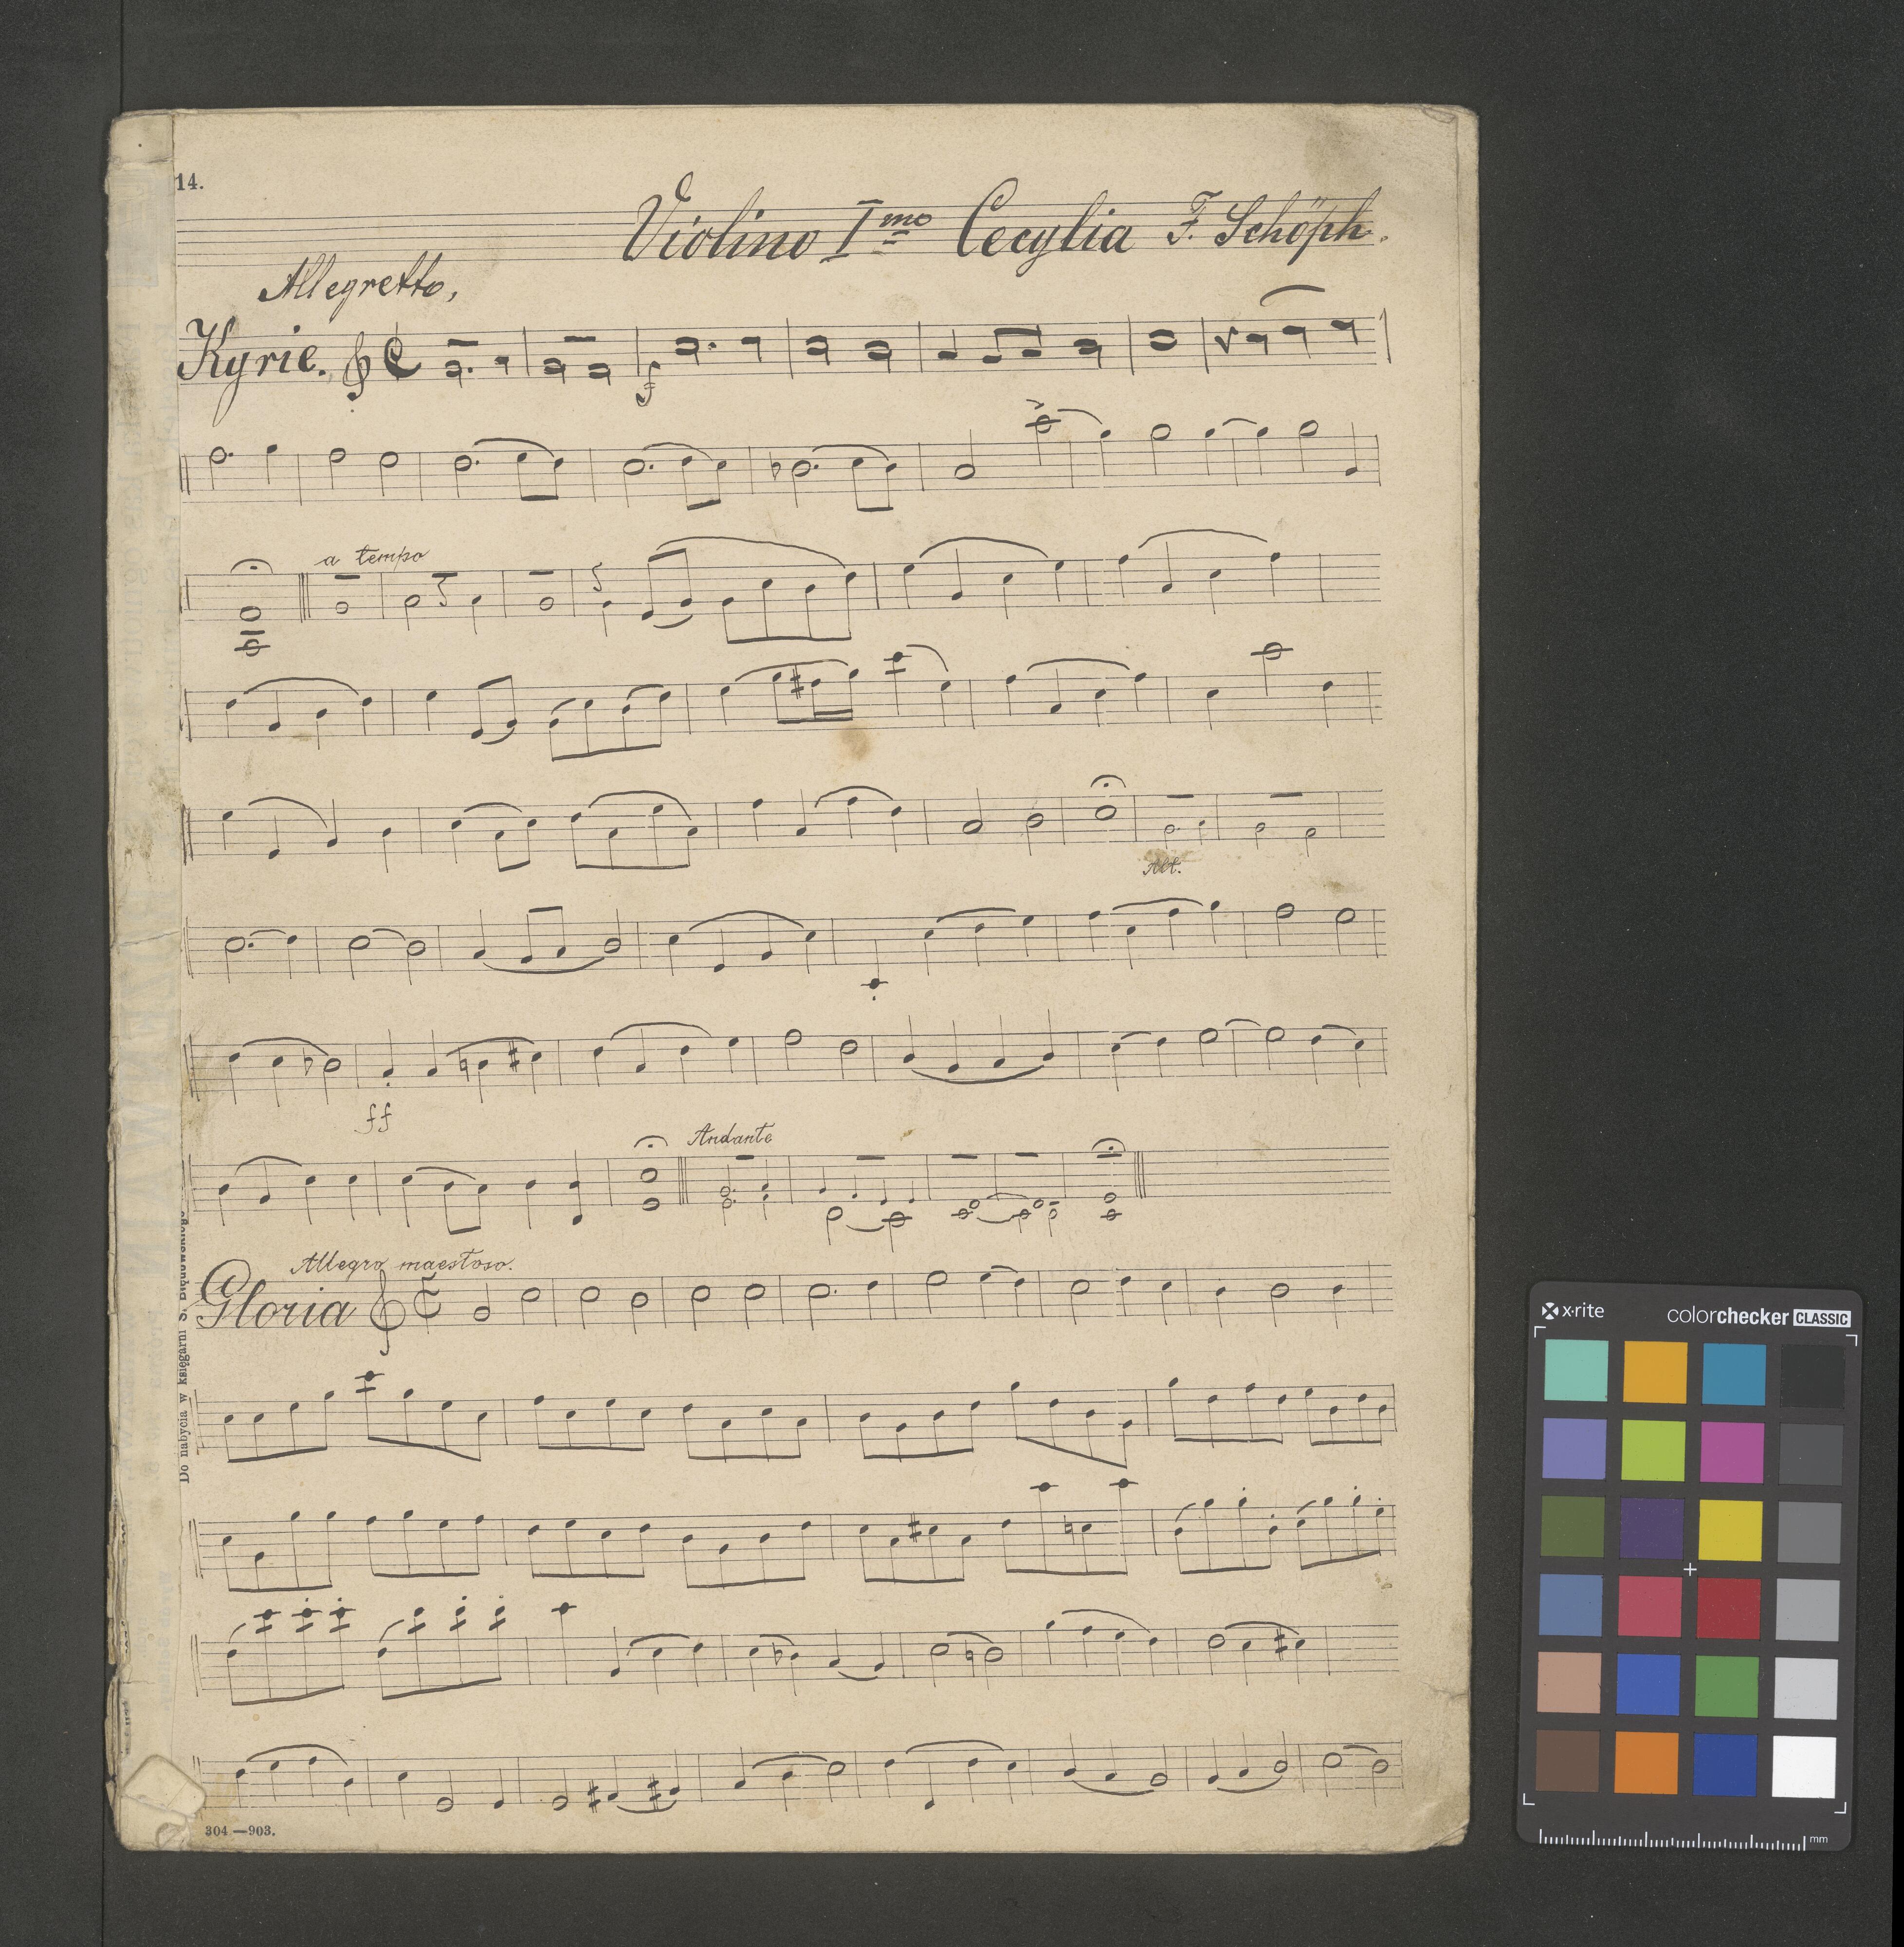 14.
Violino Imo Cecylia F. Schöph.
Allegretto,
Kyrie.
f
a tempo
Alt.
ff
Andante
Allegro maestoso.
Gloria
Do nabycia w księgarni S.
304—903.
x-rite
colorchecker CLASSIC
mm